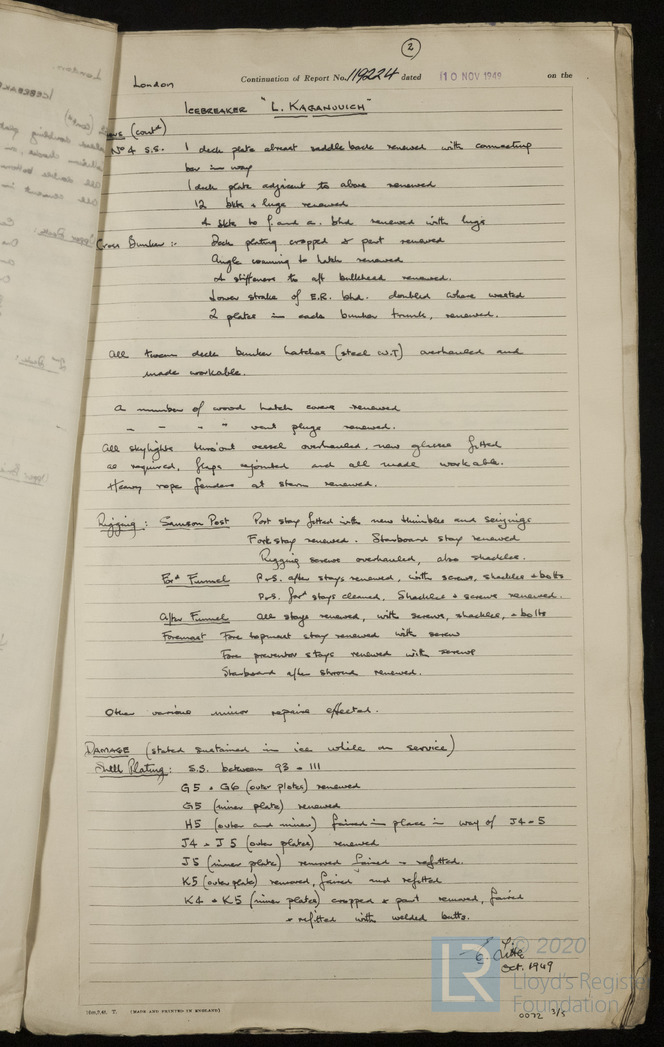 2
London Continuation of Report No. 119224 dated 10 NOV 1949 on the
ICEBREAKER "L. KAGANOVICH"
(contd)
No 4 S.S. 1 deck plate abreast saddle back renewed with connecting
bar in way
1 deck plate adjacent to above renewed
12 bkts & lugs renewed
4 bkts to f. and a. bhd renewed with lugs
Cross Bunker :- Deck plating cropped & part renewed
Angle coaming to hatch renewed
4 stiffeners to aft bulkhead renewed.
Lower strake of E.R. bhd. doubled where wasted
2 plates in each bunker trunk, renewed.
All tween deck bunker hatches (steel W.T) overhauled and
made workable.
A number of wood hatch covers renewed
" " " " vent plugs renewed.
All skylights thro'out vessel overhauled, new glasses fitted
as required, flaps rejointed and all made workable.
Heavy rope fenders at stern renewed.
Rigging : Samson Post Port stay fitted with new thimbles and seizings
Fore stay renewed. Starboard stay renewed
Rigging screws overhauled, also shackles.
Ford Funnel P&S. after stays renewed, with screws, shackles & bolts
P&S. ford stays cleaned, shackles & screws renewed.
After Funnel All stays renewed, with screws, shackles, & bolts
Foremast Fore topmast stay renewed with screw
Fore preventor stays renewed with screws
Starboard after shroud renewed.
Other various minor repairs effected.
DAMAGE (stated sustained in ice while on service)
Shell Plating : S.S. between 93 - 111
G5 & G6 (outer plates) renewed
G5 (inner plate) renewed
H5 (outer and inner) faired in place in way of J4-5
J4 & J5 (outer plates) renewed
J5 (inner plate) removed faired & refitted.
K5 (outer plate) removed, faired and refitted
K4 & K5 (inner plates) cropped & part removed, faired
& refitted with welded butts.
Oct. 1949
© 2020
LR Lloyd's Register
Foundation
T. (MADE AND PRINTED IN ENGLAND)
0072 3/5